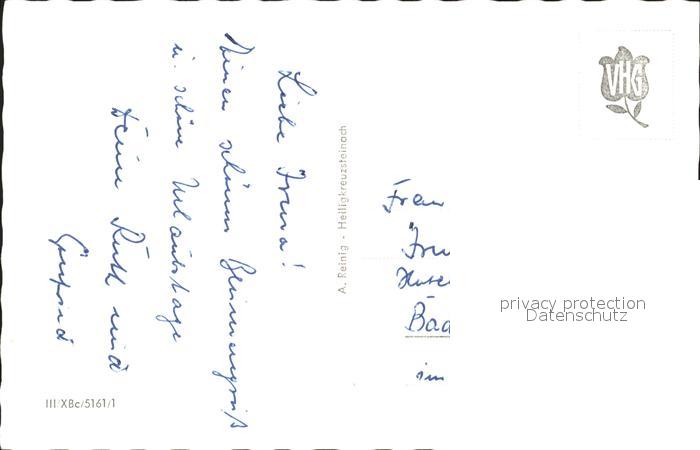 Liebe Irma!
Einen schönen Blumengruß
u. schöne Urlaubstage
Deine Ruth und
A. Reinig - Heiligkreuzsteinach
VHG
Frau
Bad
im
privacy protection
Datenschutz
III/XBc/5161/1